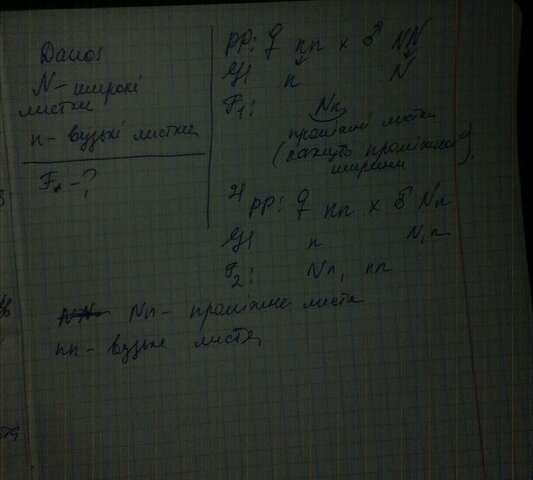 Дано:
N - широкі
листки
n - вузькі листки
F₁ - ?
PP: ♀ nn × ♂ NN
G: n N
F₁: Nn
проміжні листки
(кажуть проміжна
ширина).
PP: ♀ nn × ♂ Nn
G: n N, n
F₂: Nn, nn
Nn - проміжне листя
nn - вузьке листя